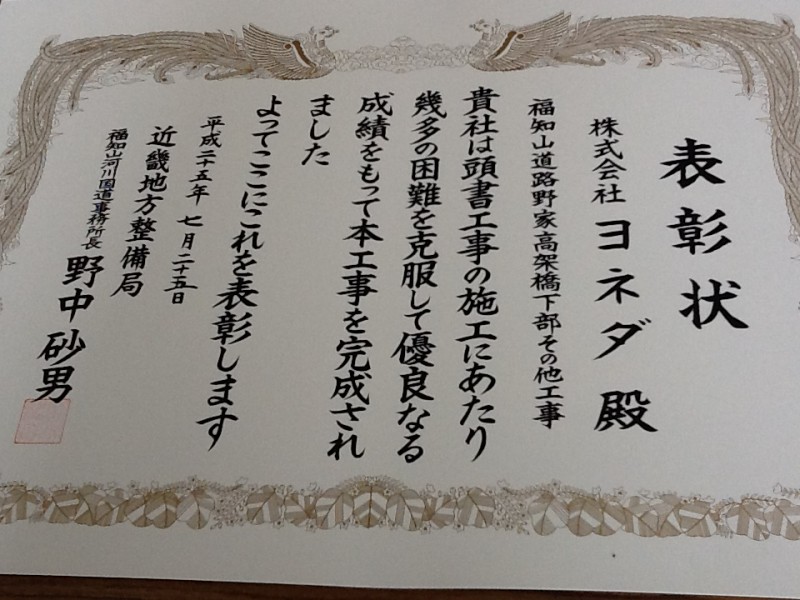 表彰状
株式会社 ヨネダ 殿
福知山道路野家高架橋下部その他工事
貴社は頭書工事の施工にあたり
幾多の困難を克服して優良なる
成績をもって本工事を完成され
ました
よってここにこれを表彰します
平成二十五年 七月二十五日
近畿地方整備局
福知山河川国道事務所長 野中砂男